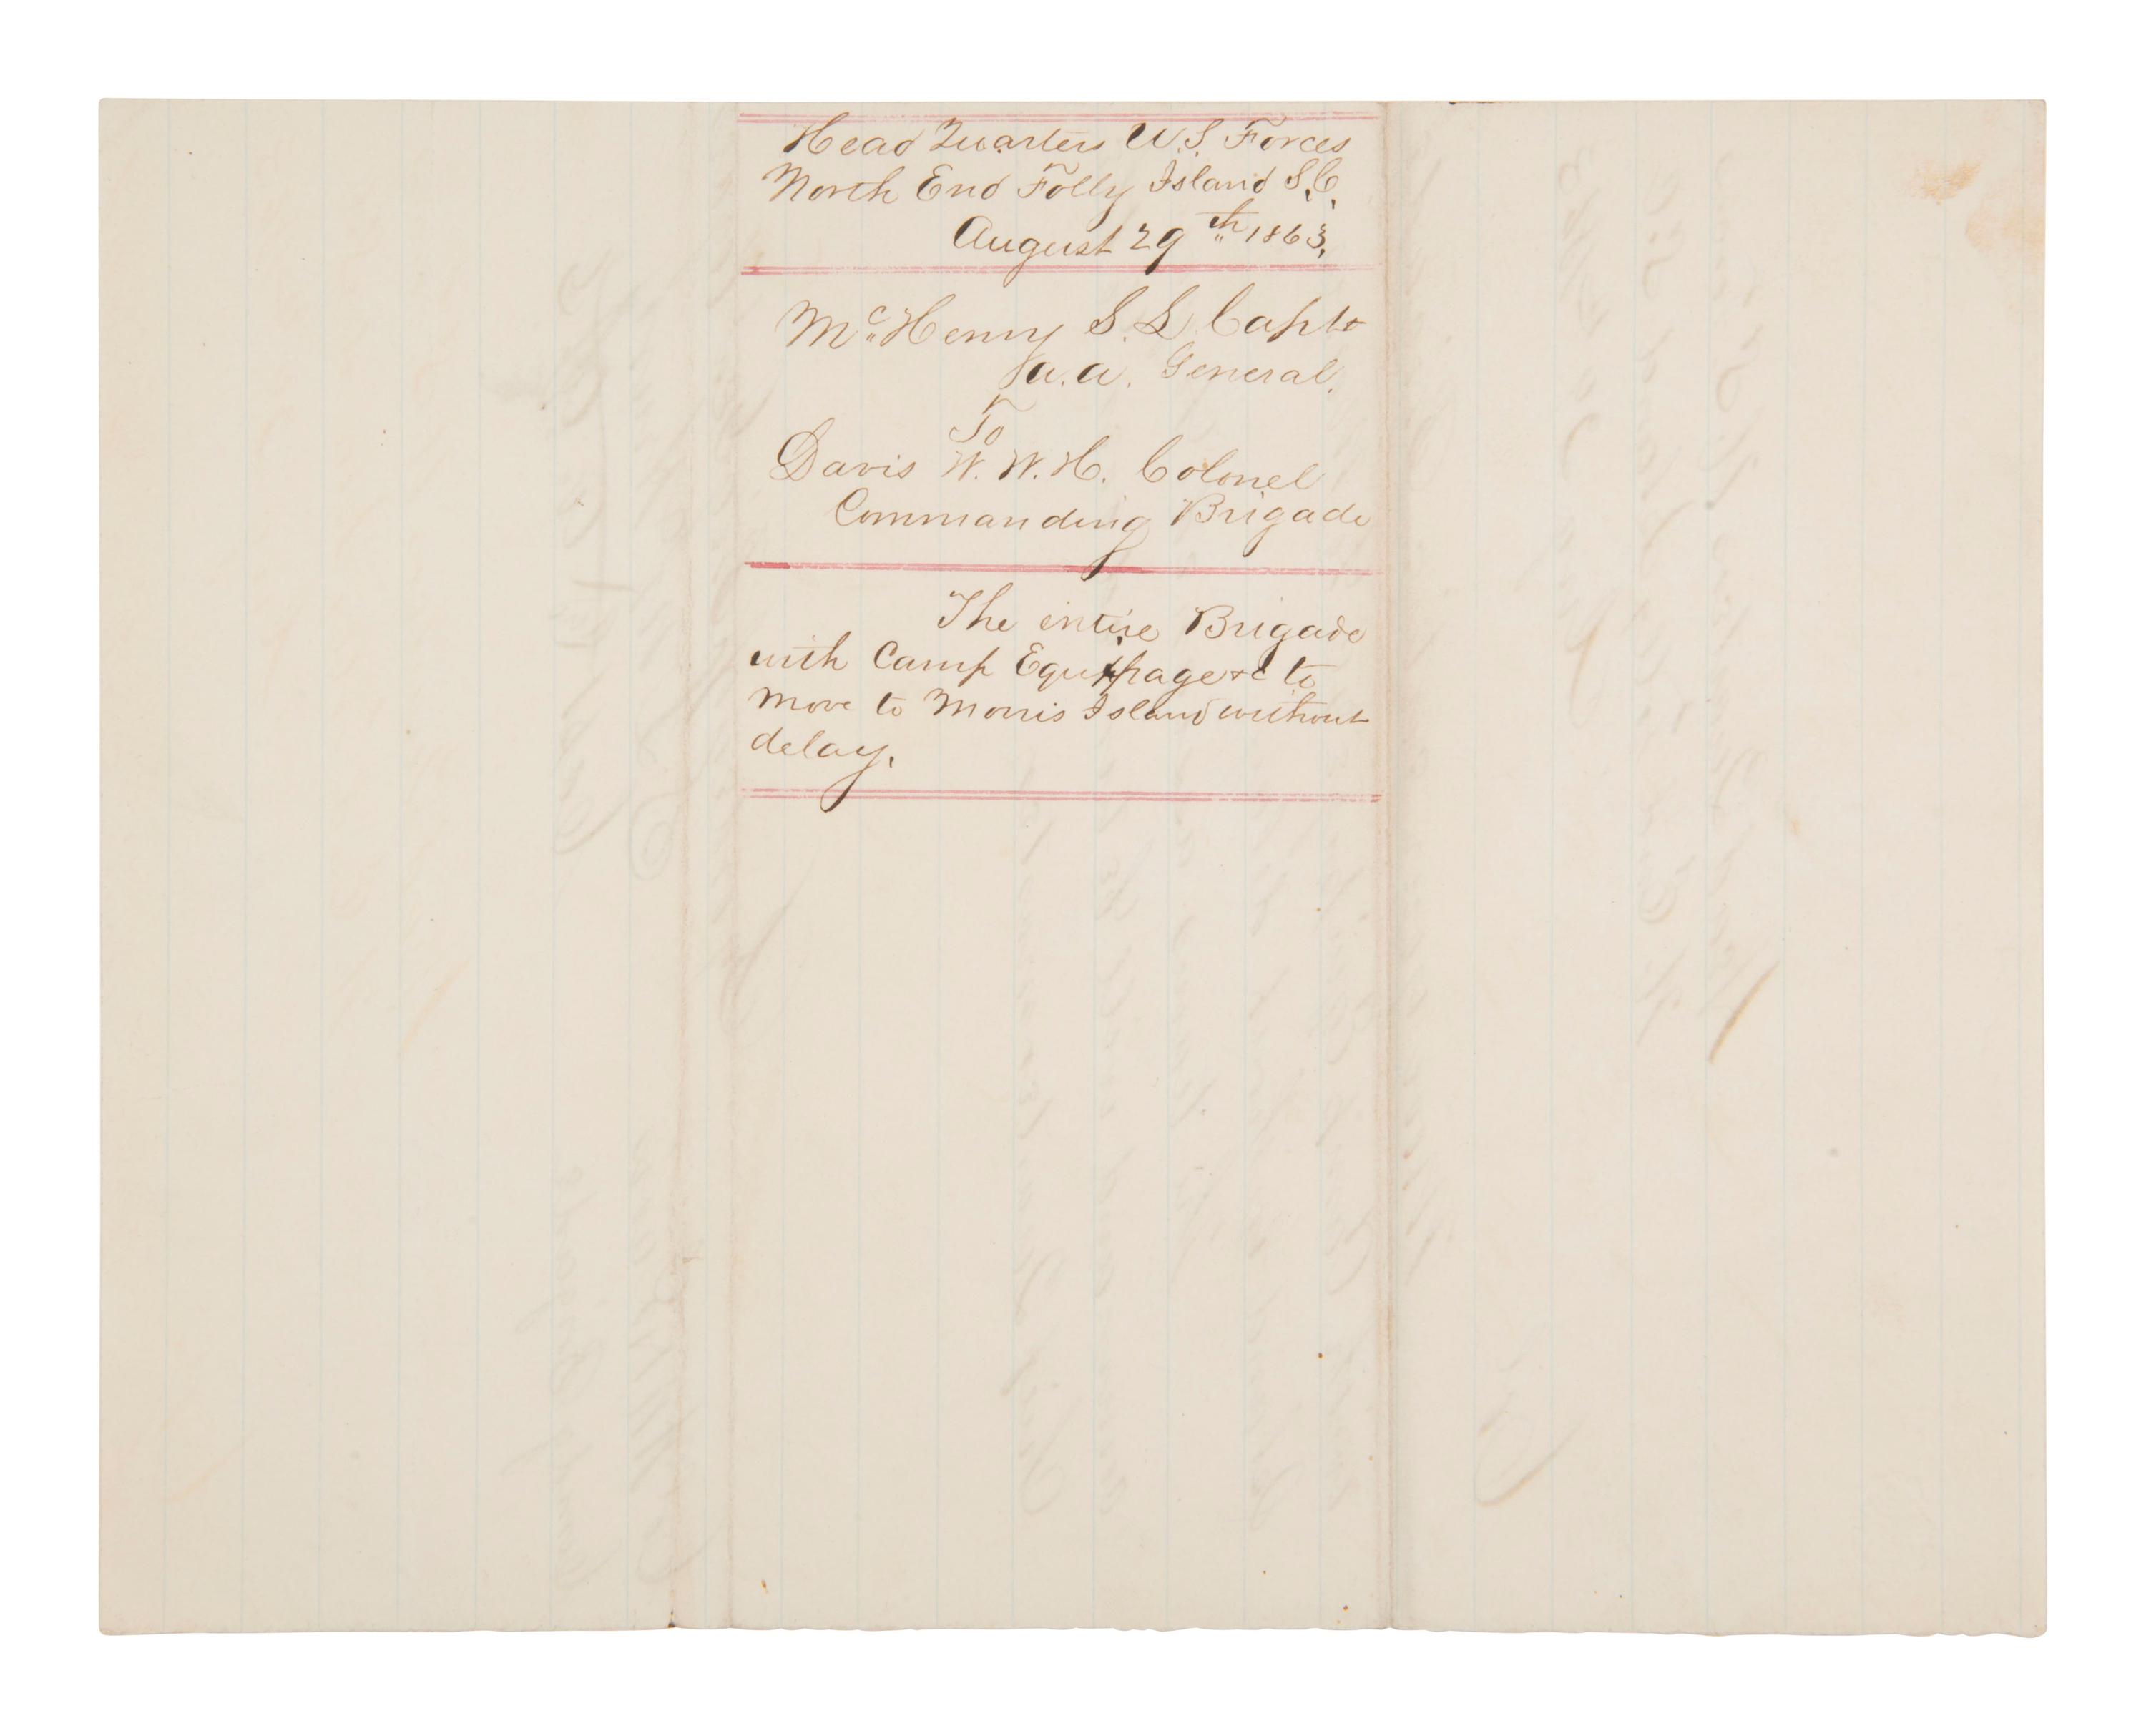 Head Quarters U.S. Forces
North End Folly Island S.C.
August 29th 1863.
McHenry S. L. Capt
A.A. General.
To
Davis W. W. H. Colonel
Commanding Brigade
The entire Brigade
with Camp Equipage &c to
move to Morris Island without
delay.